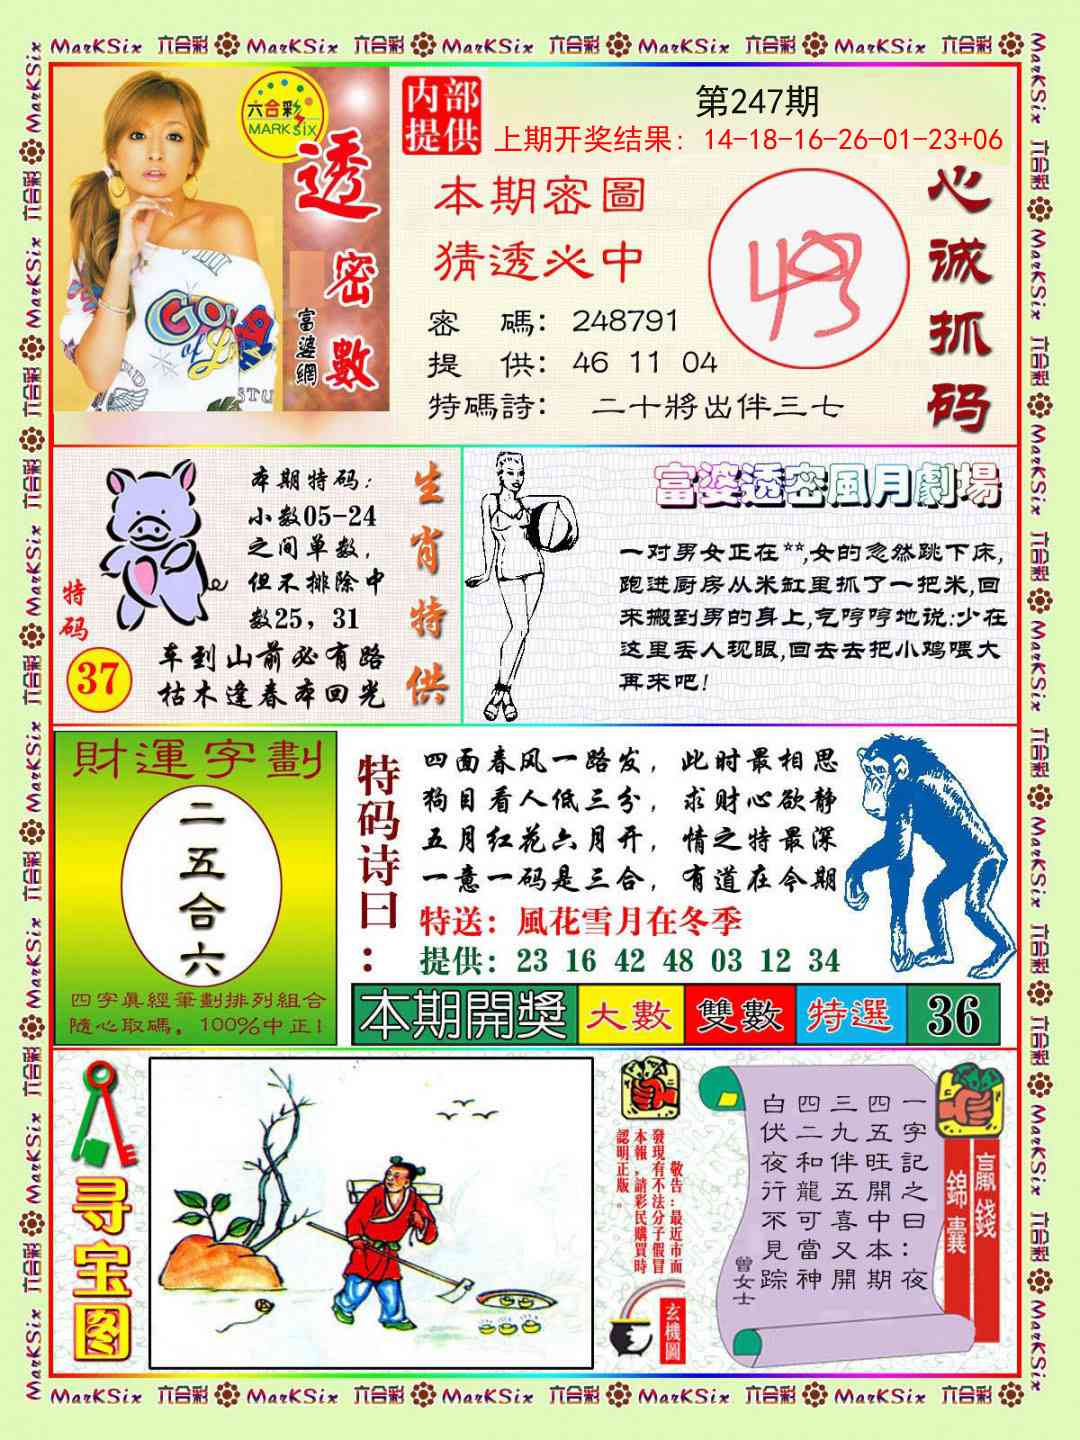 MarKSix 六合彩 MarKSix 六合彩 MarKSix 六合彩 MarKSix 六合彩 MarKSix 六合彩
六合彩
MARK SIX
透密數
富婆網
内部
提供
第247期
上期开奖结果: 14-18-16-26-01-23+06
本期密圖
猜透必中
密 碼: 248791
提 供: 46 11 04
特碼詩: 二十將出伴三七
心诚抓码
特码
37
本期特码:
小数05-24
之间单数,
但不排除中
数25, 31
车到山前必有路
枯木逢春本回光
生肖特供
富婆透密風月劇場
一对男女正在**,女的忽然跳下床,
跑进厨房从米缸里抓了一把米,回
来搬到男的身上,气哼哼地说:少在
这里丢人现眼,回去去把小鸡喂大
再来吧!
財運字劃
二五合六
四字真經筆劃排列組合
隨心取碼, 100%中正!
特码诗曰:
四面春风一路发, 此时最相思
狗目看人低三分, 求财心欲静
五月红花六月开, 情之特最深
一意一码是三合, 有道在今期
特送: 風花雪月在冬季
提供: 23 16 42 48 03 12 34
本期開獎 大數 雙數 特選 36
寻宝图
敬告:最近市面
發現有不法分子假冒
本報,請彩民購買時
認明正版。
玄機圖
贏錢
錦囊
一字記之曰:夜
四五旺開中本期
三九伴五喜又開
四二和龍可當神
白伏夜行不見踪
曾女士
MarKSix 六合彩 MarKSix 六合彩 MarKSix 六合彩 MarKSix 六合彩 MarKSix 六合彩